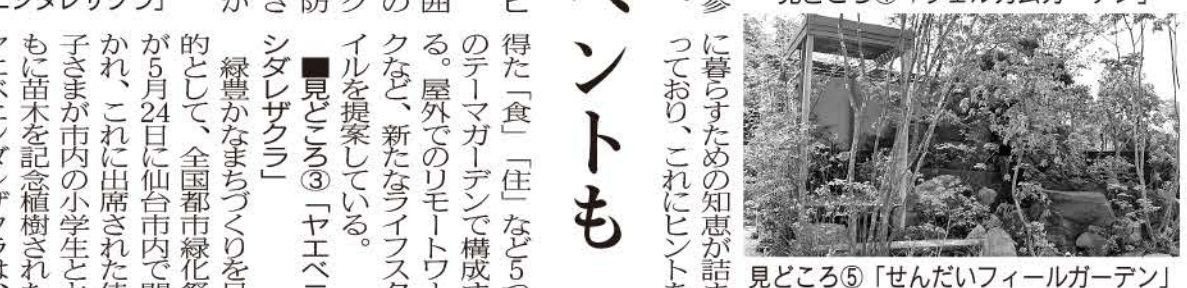 見どころ⑤「せんだいフィールガーデン」
に暮らすための知恵が詰ま
っており、これにヒントを
ントも
得た「食」「住」など5つ
のテーマガーデンで構成す
る。屋外でのリモートワー
クなど、新たなライフスタ
イルを提案している。
■見どころ③「ヤエベニ
シダレザクラ」
緑豊かなまちづくりを目
的として、全国都市緑化祭
が5月24日に仙台市内で開
かれ、これに出席された佳
子さまが市内の小学生とと
もに苗木を記念植樹された